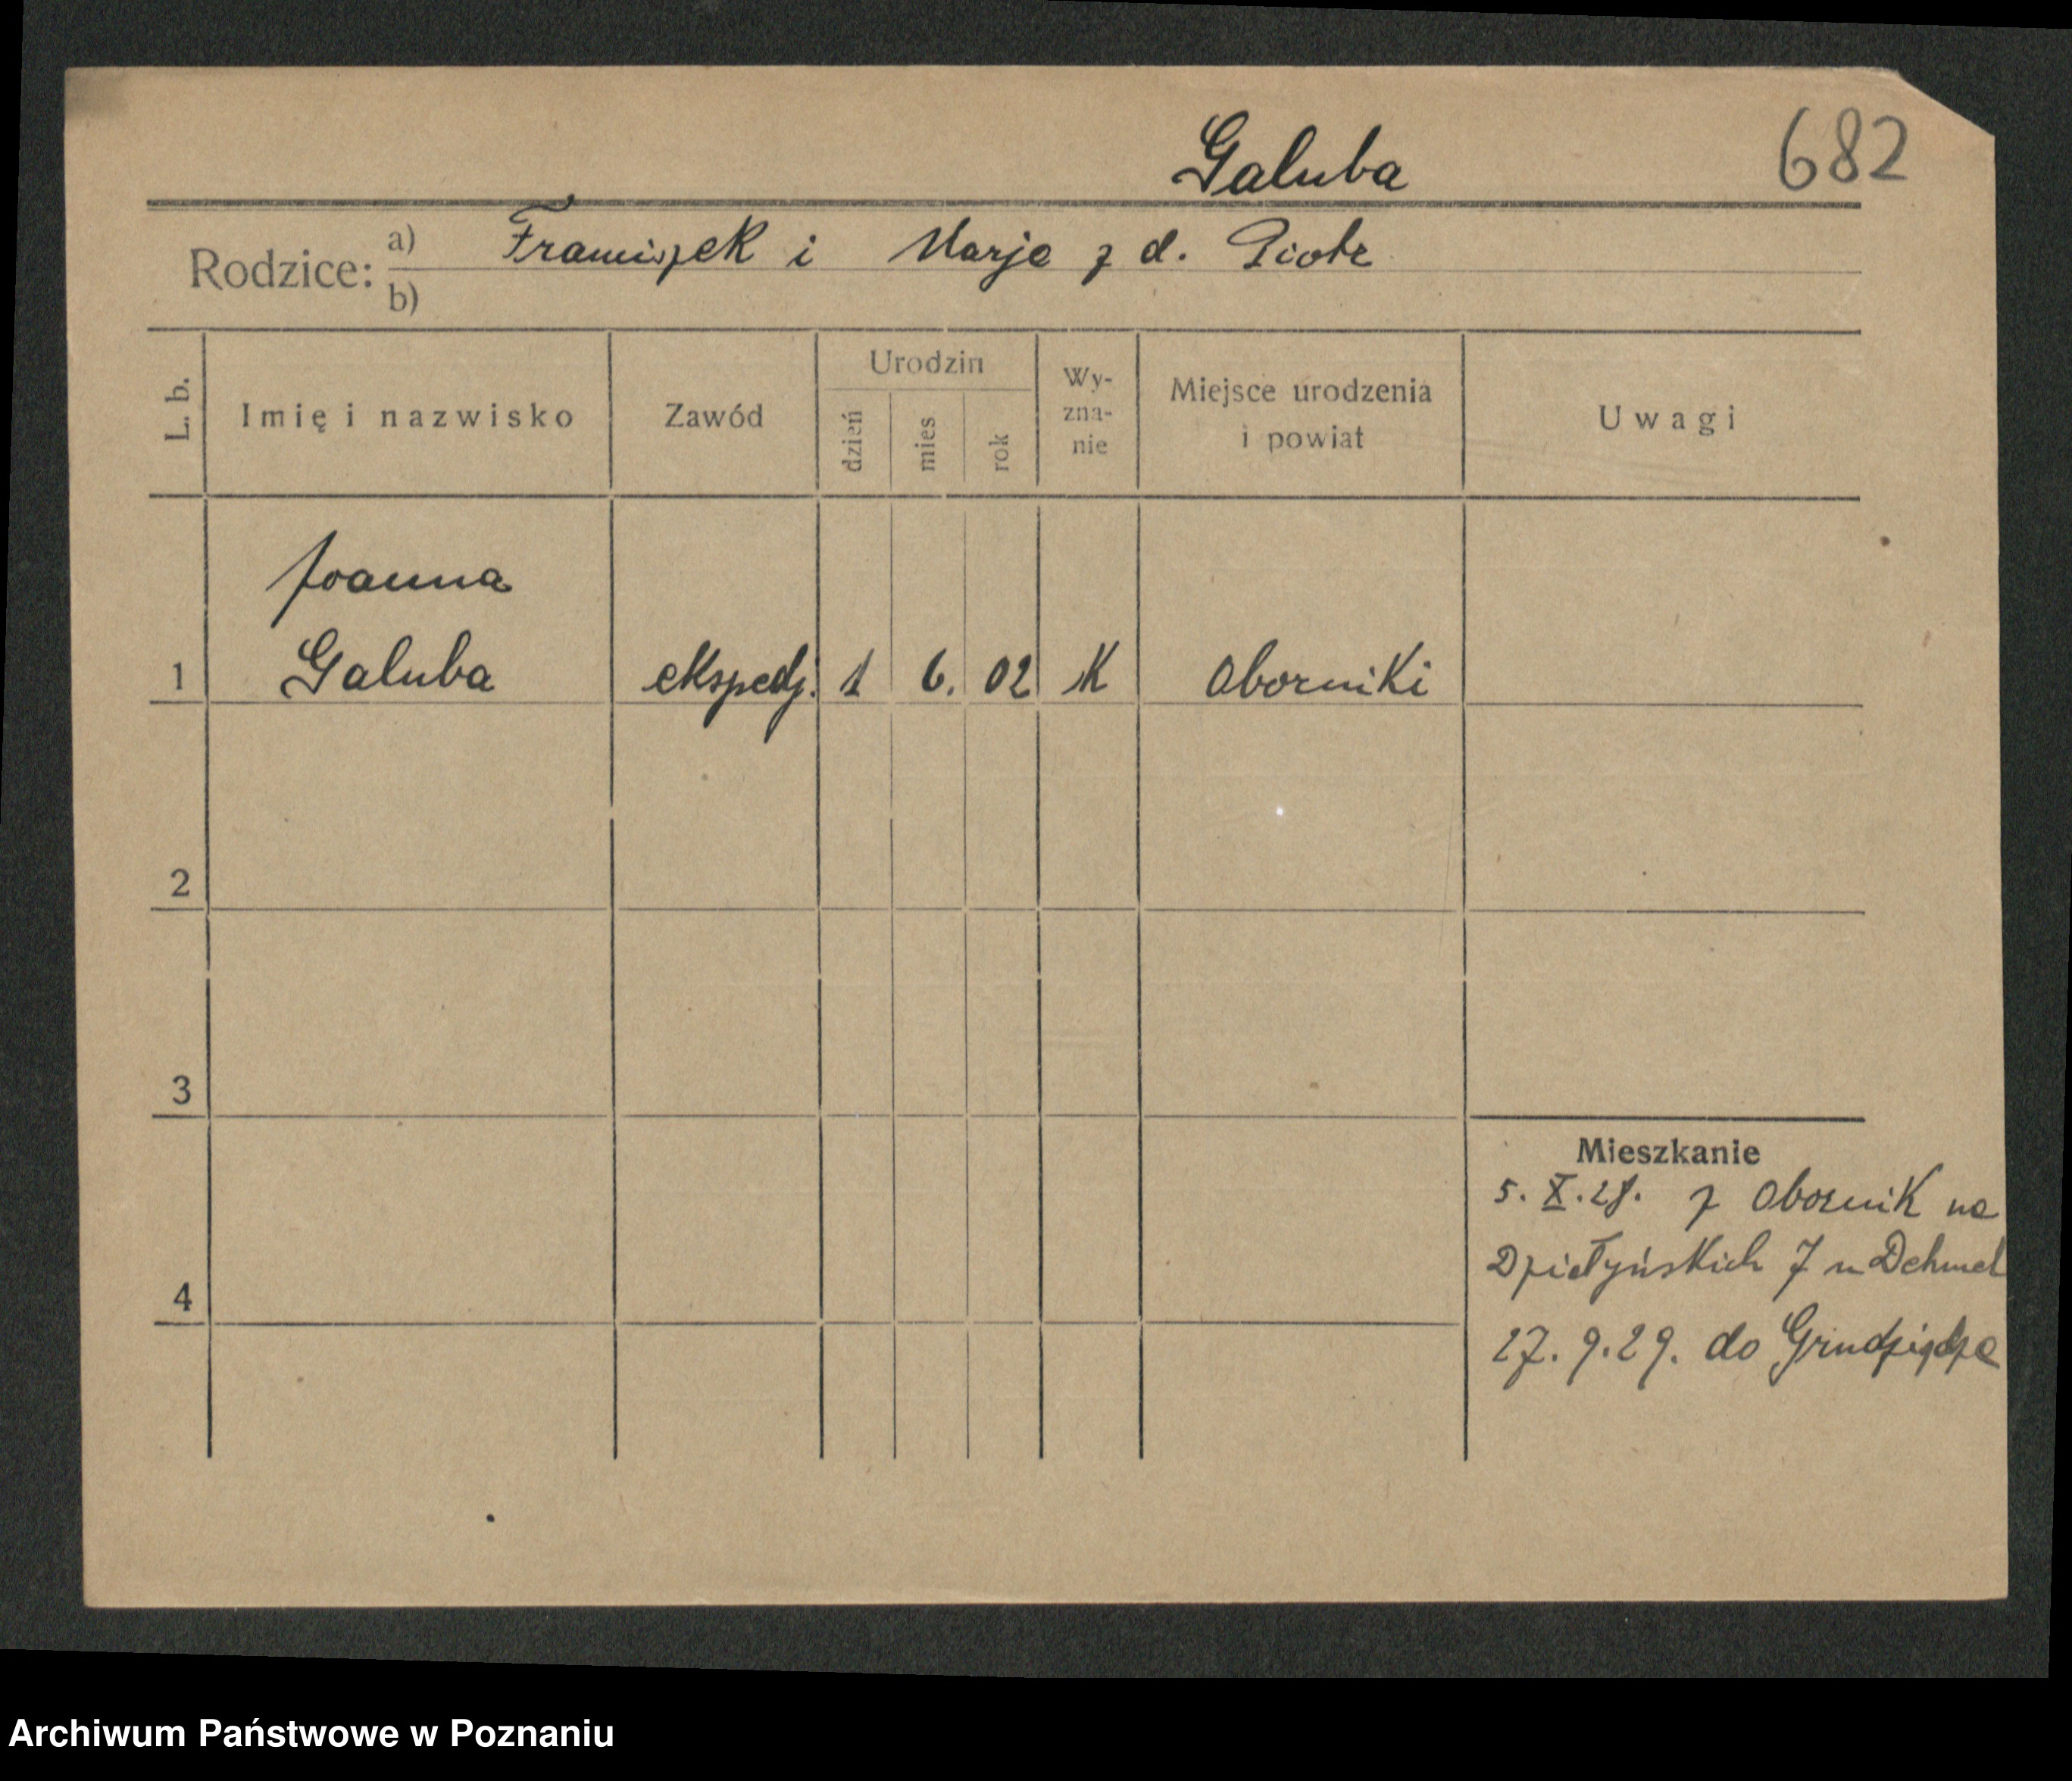 Galuba 682
Rodzice: a) Franciszek i Marja z d. Piotr
b)
L. b. Imię i nazwisko Zawód Urodzin dzień mies rok Wy-zna-nie Miejsce urodzenia i powiat Uwagi
Joanna
1 Galuba ekspedj. 1 6. 02 K Oborniki
2
3
Mieszkanie
5. X. 28. z Obornik na
4 Działyńskich 7 u Dehmel
27. 9. 29. do Grudziądza
Archiwum Państwowe w Poznaniu